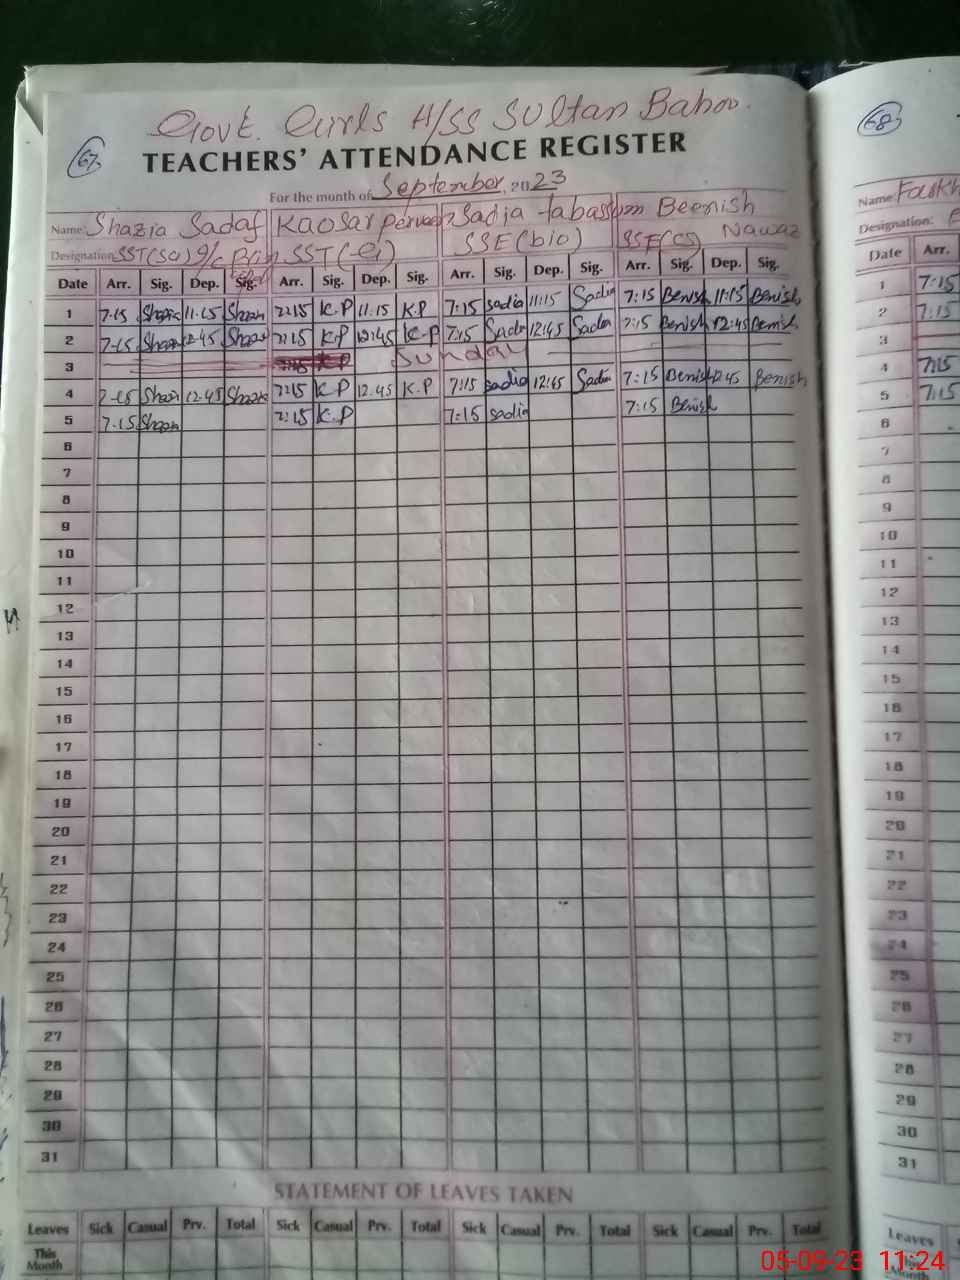 Govt. Girls H/SS Sultan Bahoo.
67
TEACHERS' ATTENDANCE REGISTER
For the month of September, 2023
Name: Shazia Sadaf Kaosar perveen Sadia tabassum Beenish Nawaz
Designation SST(Sc) SST( SSE(bio) SSE(cs)
Date Arr. Sig. Dep. Sig. Arr. Sig. Dep. Sig. Arr. Sig. Dep. Sig. Arr. Sig. Dep. Sig.
1 7-15 Shazia 11-15 7:15 K.P 11:15 K.P 7:15 sadia 11:15 Sadia 7:15 Benish 11:15 Benish
2 7-15 12-45 7:15 K.P 12:45 K.P 7:15 Sadia 12:45 Sadia 7:15 Benish 12:45 Benish
3 Sunday
4 7-15 12.45 7:15 K.P 12.45 K.P 7:15 sadia 12:45 Sadia 7:15 Benish 12:45 Benish
5 7-15 7:15 K.P 7:15 sadia 7:15 Benish
6
7
8
9
10
11
12
13
14
15
16
17
18
19
20
21
22
23
24
25
26
27
28
29
30
31
STATEMENT OF LEAVES TAKEN
Leaves Sick Casual Prv. Total Sick Casual Prv. Total Sick Casual Prv. Total Sick Casual Prv. Total
This Month
68
Name:
Designation:
Date Arr.
1 7:15
2 7:15
3
4 7:15
5 7:15
6
7
8
9
10
11
12
13
14
15
16
17
18
19
20
21
22
23
24
25
26
27
28
29
30
31
Leaves
This Month
05-09-23 11:24